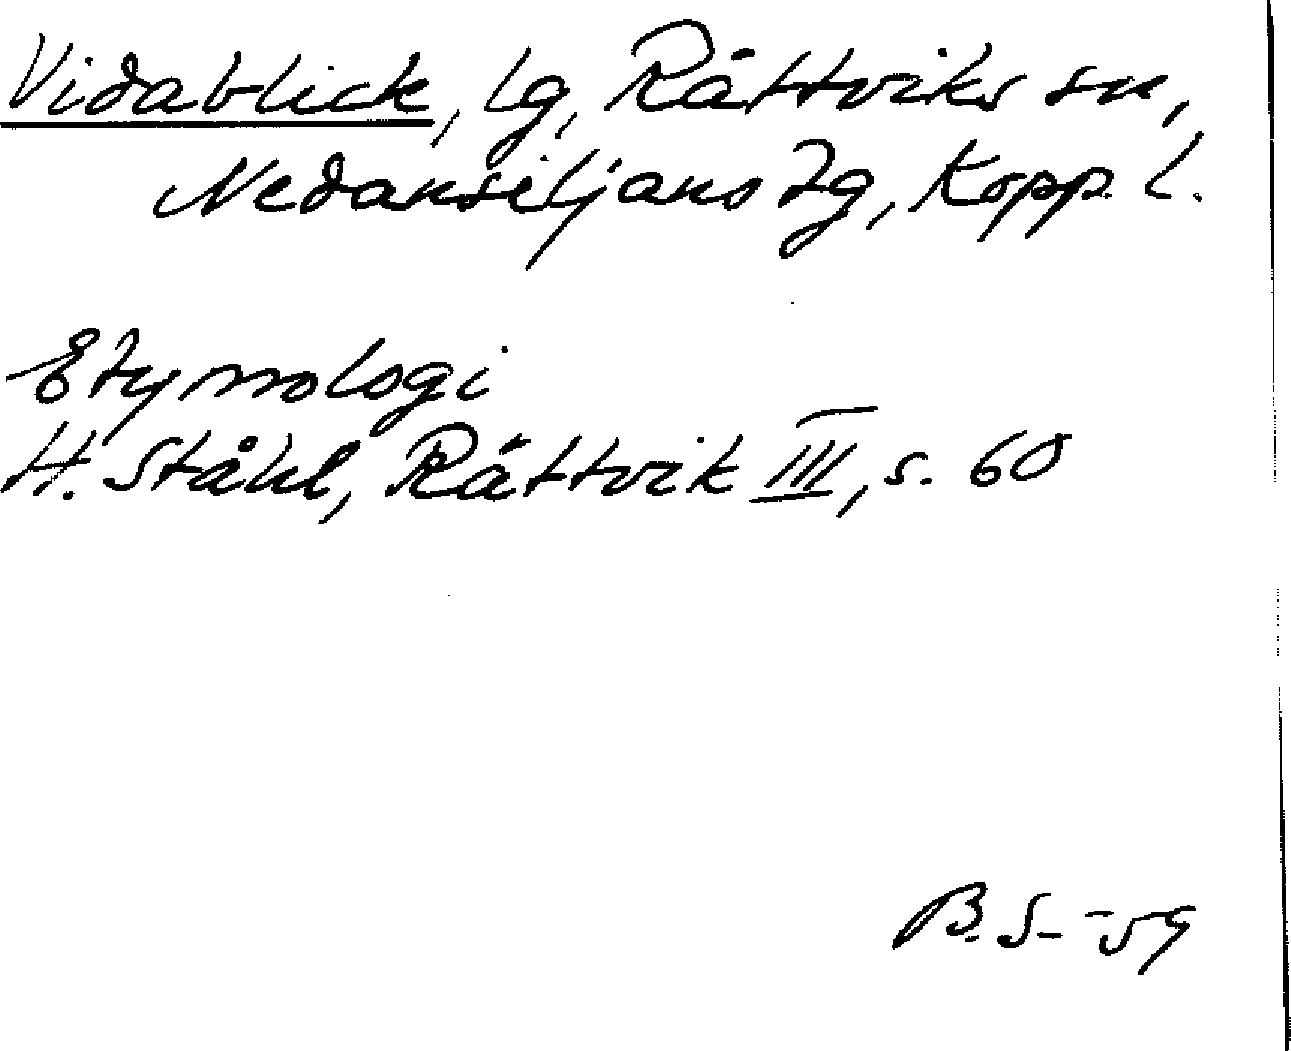 Vidablick, lg, Rättviks sn,
Nedansiljans tg, Kopp. l.
Etymologi
H. Ståhl, Rättvik III, s. 60
B. S. -59